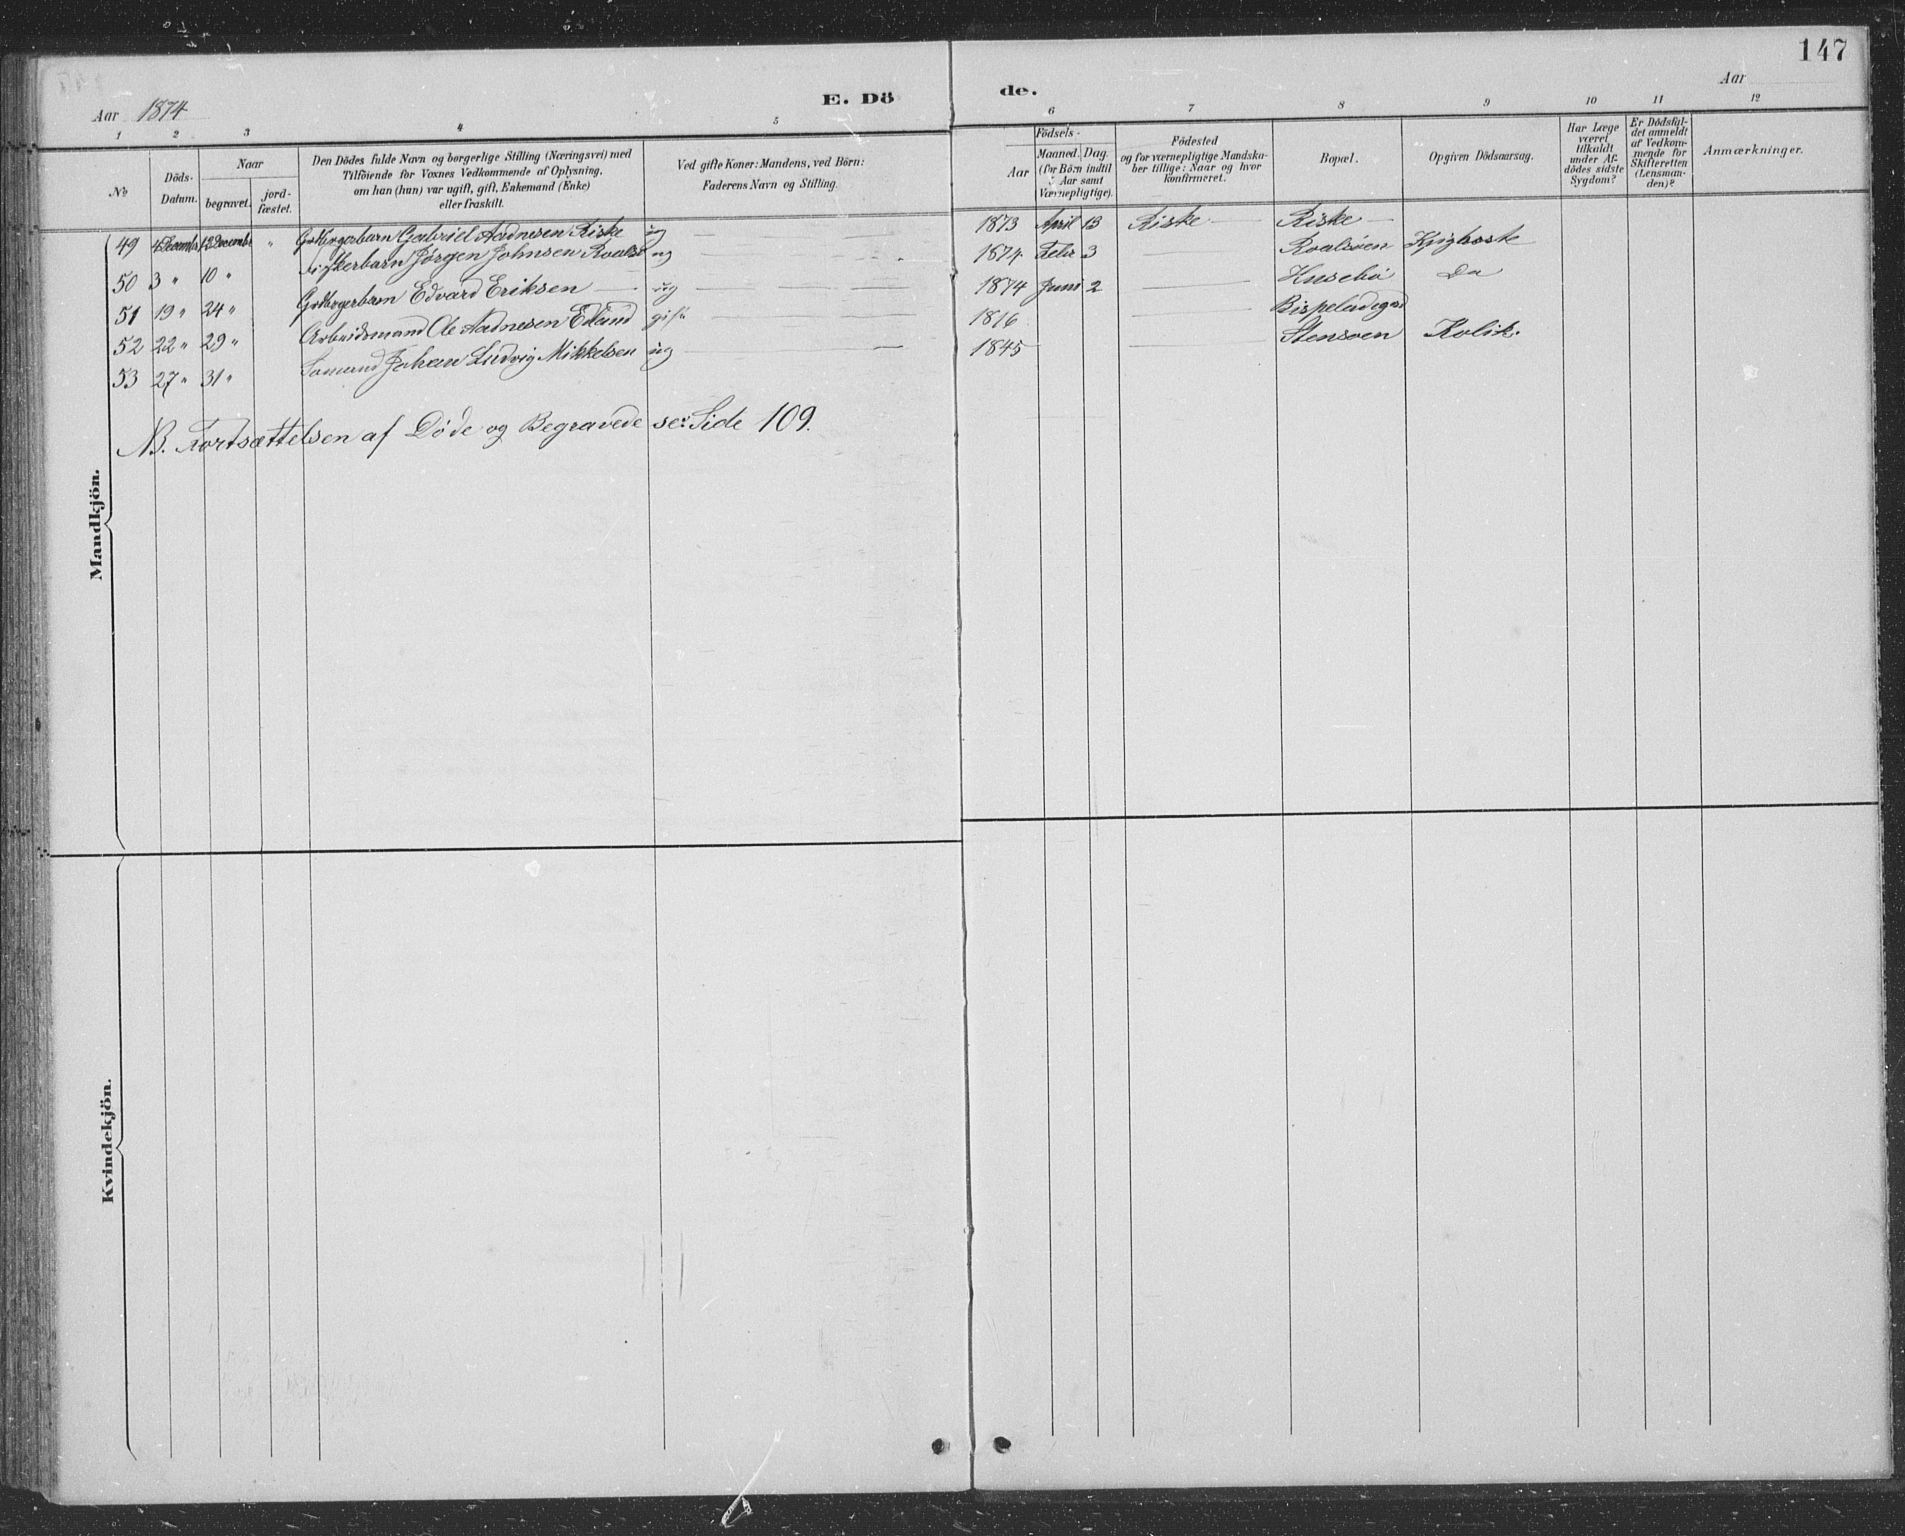 147
Aar 1874
E. Dö
de.
Aar
1 2 3 4 5 6 7 8 9 10 11 12
No
Döds-
Datum.
Naar
begravet.
jord-
fæstet.
Den Dödes fulde Navn og borgerlige Stilling (Næringsvei) med
Tilföiende for Voxnes Vedkommende af Oplysning,
om han (hun) var ugift, gift, Enkemand (Enke)
eller fraskilt.
Ved gifte Koner: Mandens, ved Börn:
Faderens Navn og Stilling.
Födsels-
Aar
Maaned. Dag.
(for Börn indtil
Aar samt
Værnepligtige).
Födested
og for værnepligtige Mandska-
ber tillige: Naar og hvor
konfirmeret.
Bopæl.
Opgiven Dödsaarsag.
Har Læge
været
tilkaldt
under Af-
dödes sidste
Sygdom?
Er Dödsfal-
det anmeldt
af Vedkom-
mende for
Skifteretten
(Lensman-
den)?
Anmærkninger.
49 4 Decembr 12 Decembr " Grdbrgerbarn Gabriel Aadnesen Riske ug 1873 April 13 Riske Riske
50 3 " 10 " Fiskerbarn Jørgen Johnsen Roalsø ug 1874 Febr 3 Roalsöen Kighoste
51 19 " 24 " Grdbrgerbarn Edvard Eriksen ug 1874 Juni 2 Husebö Do
52 22 " 29 " Arbeidsmand Ole Aadnesen Edland gift 1816 Bispeladegrd
53 27 " 31 " Sømand Johan Ludvig Mikkelsen ug 1845 Stensöen Kolik.
NB. Fortsættelsen af Døde og Begravede se: Side 109.
Mandkjön.
Kvindekjön.